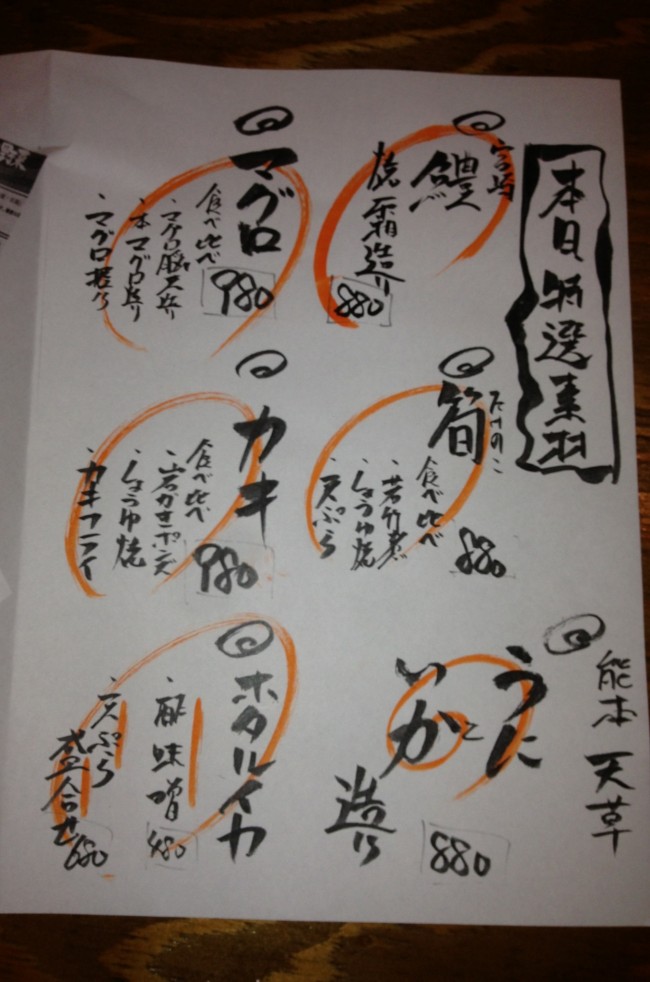 本日特選素材
宮崎
鱧
焼霜造り
880
マグロ
食べ比べ
980
・本マグロ造り
・マグロ握り
たけのこ
筍
食べ比べ
・若竹煮
・しょうゆ焼
・天ぷら
880
カキ
食べ比べ
・岩ガキポン酢
・しょうゆ焼
・カキフライ
980
熊本 天草
うに
と
いか
造り
880
ホタルイカ
・酢味噌
480
・天ぷら
盛合せ
680